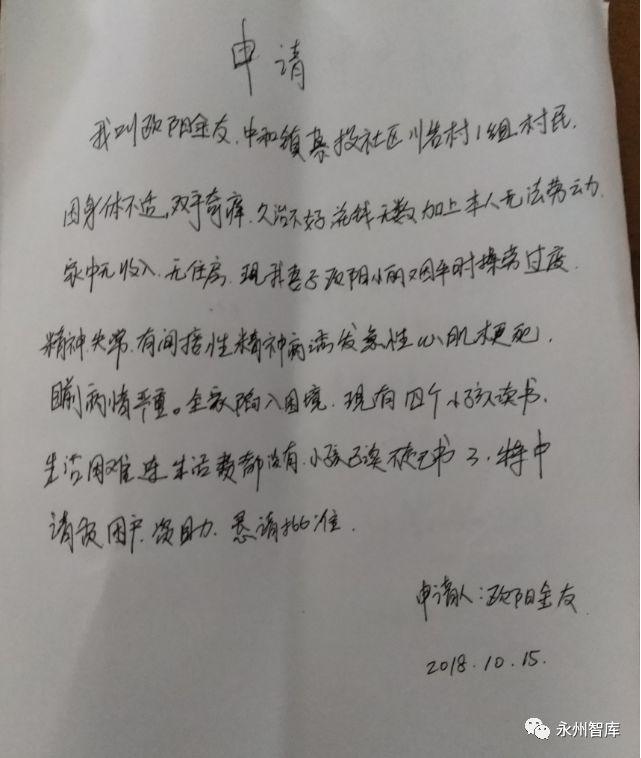 申请
我叫欧阳金友.中和镇 社区 村1组村民.
因身体不适,双手奇痒.久治不好花钱无数加上本人无法劳动.
家中无收入.无住房.现我妻子欧阳小丽因平时操劳过度.
精神失常.有间接性精神病诱发急性心肌梗死.
目前病情严重。全家陷入困境.现有四个小孩读书.
生活困难连生活费都没有.小孩已读不起书了.特申
请 困户资助.恳请批准.
申请人:欧阳金友
2018.10.15.
永州智库